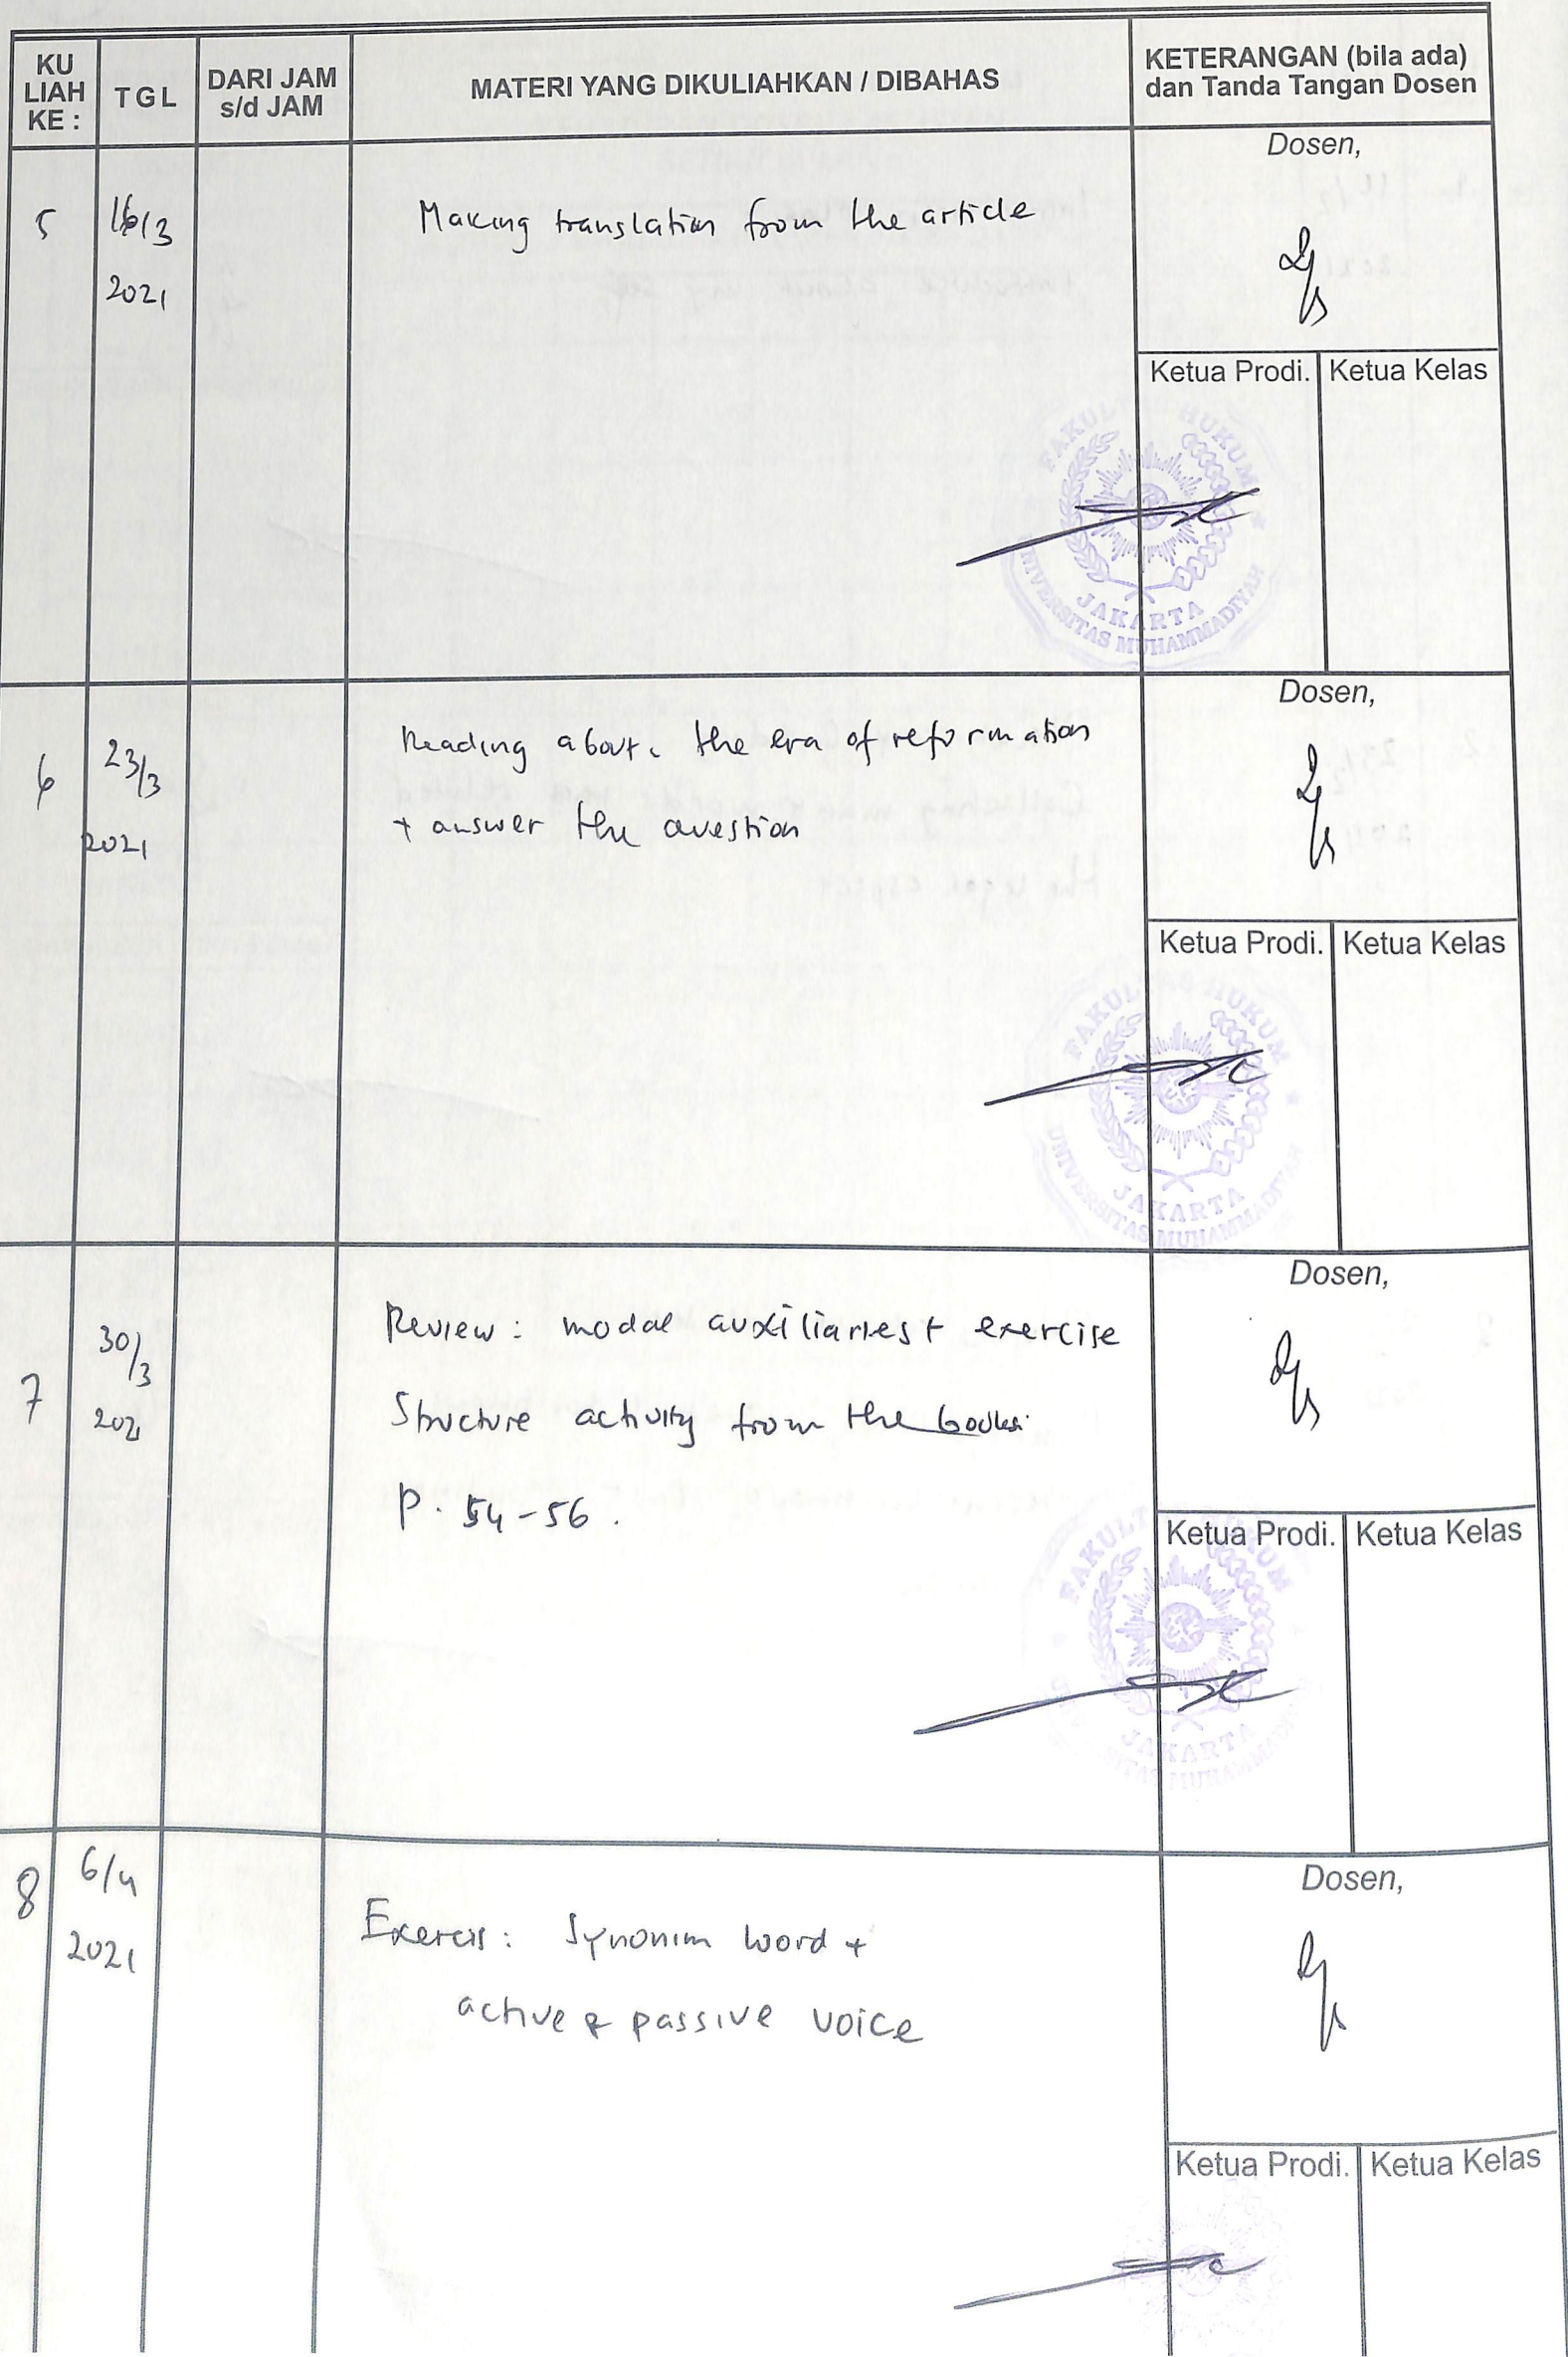 KU
LIAH
KE :
TGL
DARI JAM
s/d JAM
MATERI YANG DIKULIAHKAN / DIBAHAS
KETERANGAN (bila ada)
dan Tanda Tangan Dosen
5
16/3
2021
Making translation from the article
Dosen,
Ketua Prodi. Ketua Kelas
FAKULTAS HUKUM
UNIVERSITAS MUHAMMADIYAH
JAKARTA
6
23/3
2021
Reading about : the era of reformation
+ answer the question
Dosen,
Ketua Prodi. Ketua Kelas
FAKULTAS HUKUM
UNIVERSITAS MUHAMMADIYAH
JAKARTA
7
30/3
2021
Review : modal auxiliaries + exercise
Structure activity from the books
P. 54-56.
Dosen,
Ketua Prodi. Ketua Kelas
FAKULTAS HUKUM
JAKARTA
8
6/4
2021
Exercis : Synonim word +
active & passive voice
Dosen,
Ketua Prodi. Ketua Kelas